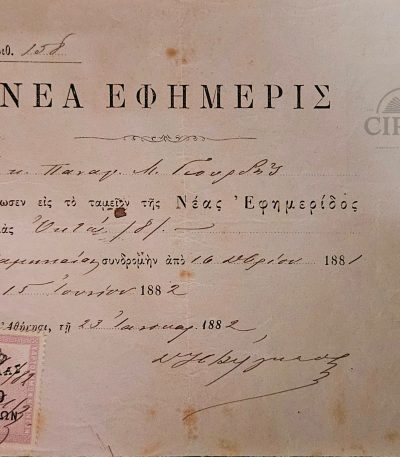 ιθ. 158
ΝΕΑ ΕΦΗΜΕΡΙΣ
CIR
κ. Παναγ. Μ.
ωσεν εἰς τὸ ταμεῖον τῆς Νέας Ἐφημερίδος
ὰς Ὀκτὼ /8/
συνδρομὴν ἀπὸ 16 1881
15 Ἰουνίου 1882
Ἀθήνησι, τῇ 23 Ἰανουαρ. 1882
ΩΝ